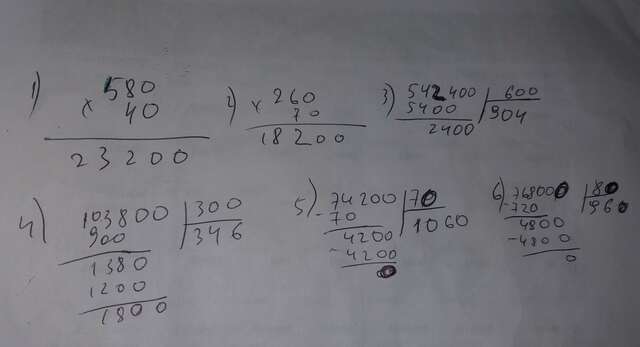 1) 580
× 40
23200
2) × 260
70
18200
3) 542400 | 600
5400 | 904
2400
4) 103800 | 300
900 | 346
1380
1200
1800
5) 74200 | 70
-70 | 1060
4200
-4200
0
6) 768000 | 80
-720 | 960
4800
-4800
0